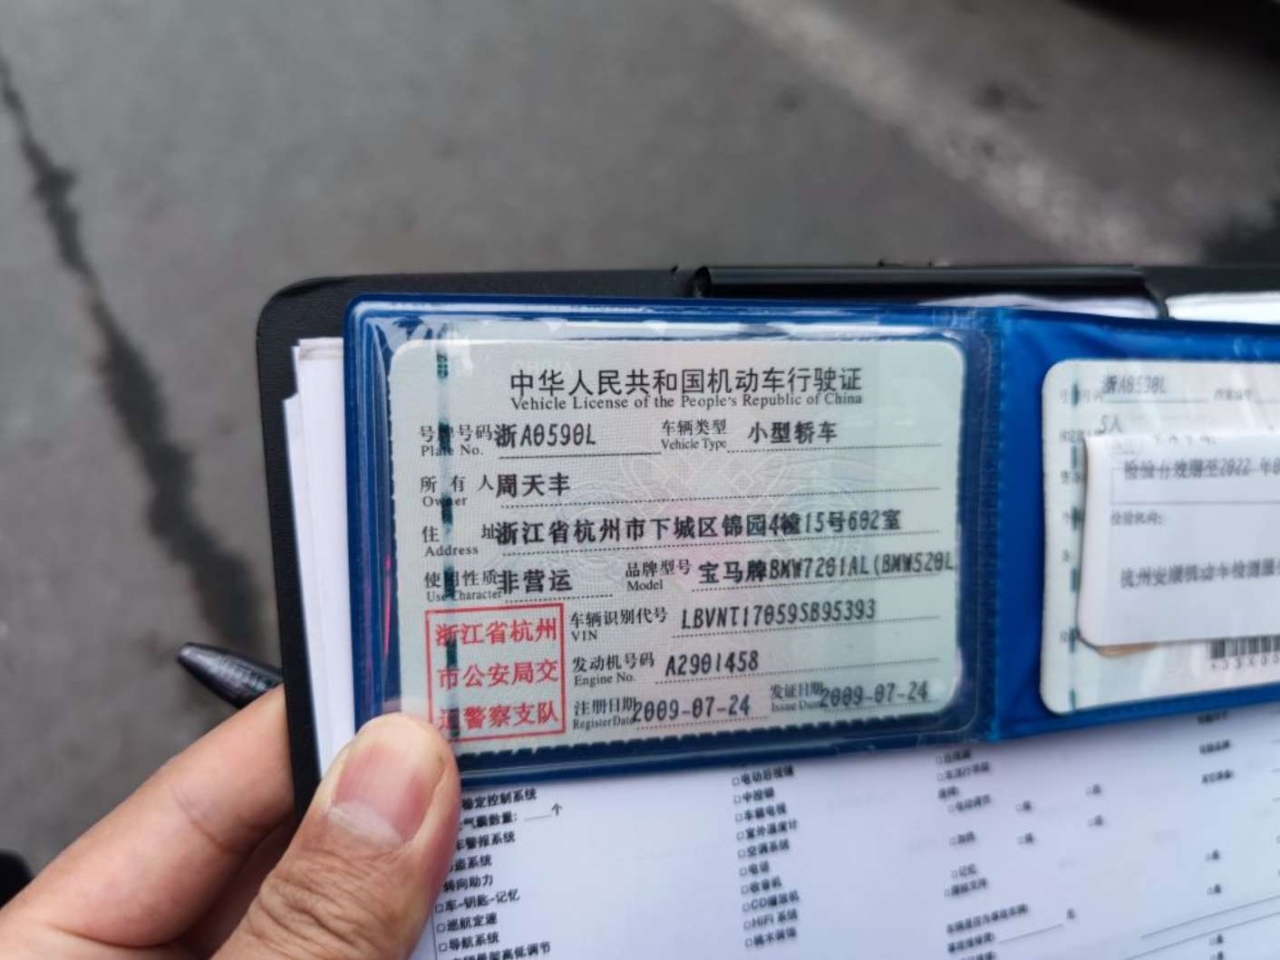 中华人民共和国机动车行驶证
Vehicle License of the People's Republic of China
号牌号码 浙A0590L 车辆类型 小型轿车
Plate No. Vehicle Type
所有人 周天丰
Owner
住址 浙江省杭州市下城区锦园4幢15号602室
Address
使用性质 非营运 品牌型号 宝马牌BMW7201AL(BMW520L
Use Character Model
浙江省杭州
市公安局交
通警察支队
车辆识别代号 LBVNT17059SB95393
VIN
发动机号码 A2901458
Engine No.
注册日期 2009-07-24 发证日期 2009-07-24
Register Date Issue Date
浙A0590L
5人
检验有效期至2022 年
检验机构:
杭州安康机动车检测服
稳定控制系统
气囊数量: 个
车警报系统
盗系统
转向助力
□车-钥匙-记忆
□巡航定速
□导航系统
□电动后视镜
□中控锁
□车载电视
□室外温度计
□空调系统
□电话
□收音机
□CD播放机
□HiFi 系统
□记忆